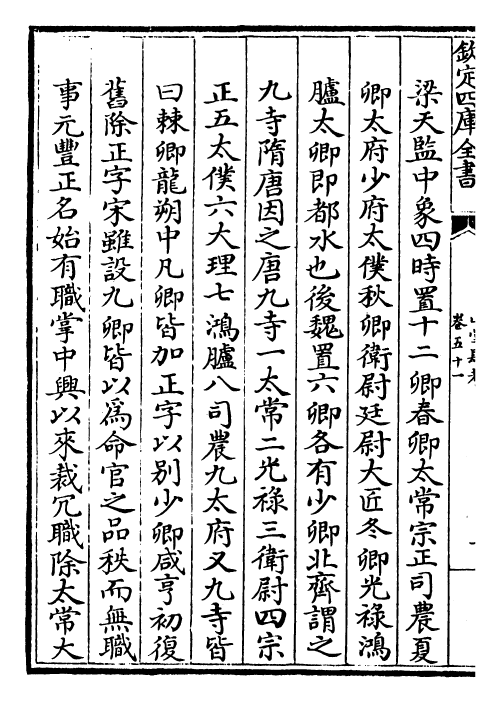 欽定四庫全書
卷五十一
梁天監中象四時置十二卿春卿太常宗正司農夏
卿太府少府太僕秋卿衛尉廷尉大匠冬卿光祿鴻
臚太卿即都水也後魏置六卿各有少卿北齊謂之
九寺隋唐因之唐九寺一太常二光祿三衛尉四宗
正五太僕六大理七鴻臚八司農九太府又九寺皆
曰棘卿龍朔中凡卿皆加正字以別少卿咸亨初復
舊除正字宋雖設九卿皆以為命官之品秩而無職
事元豐正名始有職掌中興以來裁冗職除太常大